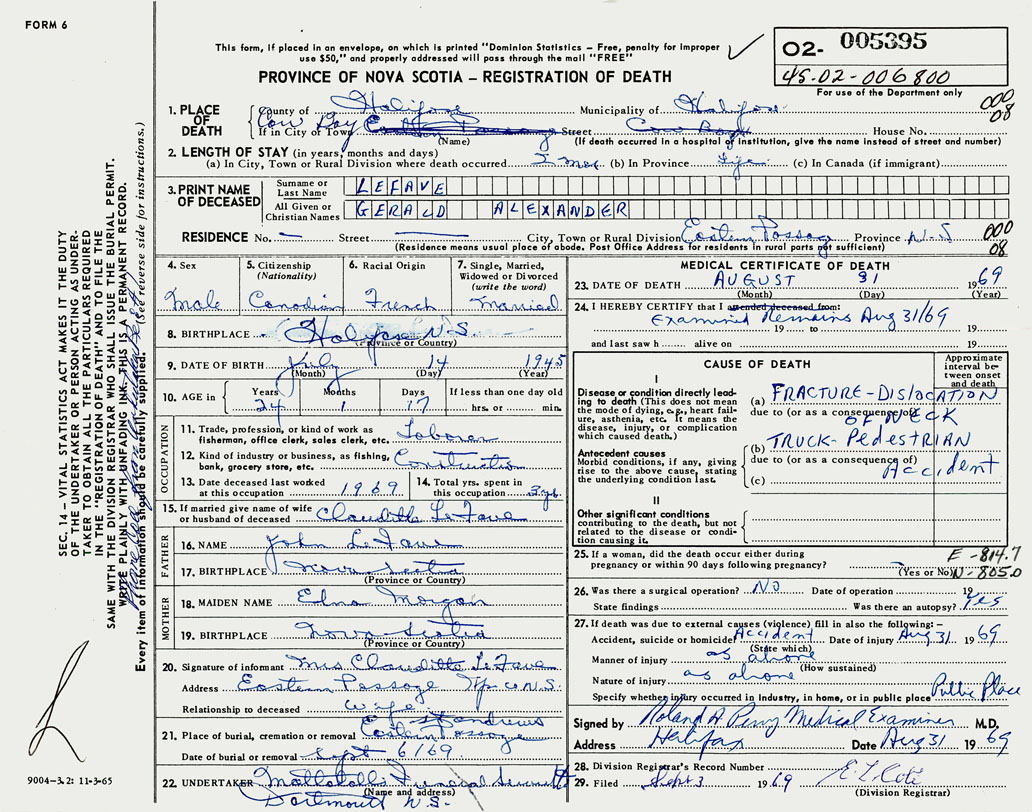 FORM 6
This form, if placed in an envelope, on which is printed "Dominion Statistics - Free, penalty for improper
use $50," and properly addressed will pass through the mail "FREE"
PROVINCE OF NOVA SCOTIA - REGISTRATION OF DEATH
02- 005395
45-02-006800
For use of the Department only
000
08
1. PLACE OF DEATH
County of Halifax Municipality of Halifax
If in City or Town Cow Bay Street Cow Bay House No.
(Name) (If death occurred in a hospital or institution, give the name instead of street and number)
2. LENGTH OF STAY (in years, months and days)
(a) In City, Town or Rural Division where death occurred (b) In Province Life (c) In Canada (if immigrant)
3. PRINT NAME OF DECEASED
Surname or Last Name LEFAVE
All Given or Christian Names GERALD ALEXANDER
RESIDENCE No. — Street — City, Town or Rural Division Eastern Passage Province N.S.
(Residence means usual place of abode. Post Office Address for residents in rural parts not sufficient)
000
08
4. Sex Male
5. Citizenship (Nationality) Canadian
6. Racial Origin French
7. Single, Married, Widowed or Divorced (write the word) Married
8. BIRTHPLACE Halifax N.S.
(Province or Country)
9. DATE OF BIRTH July 14 1945
(Month) (Day) (Year)
10. AGE in Years 24 Months 1 Days 17 If less than one day old hrs. or min.
OCCUPATION
11. Trade, profession or kind of work as fisherman, office clerk, sales clerk, etc. Laborer
12. Kind of industry or business, as fishing, bank, grocery store, etc. Construction
13. Date deceased last worked at this occupation 1969
14. Total yrs. spent in this occupation 3 yrs
15. If married give name of wife or husband of deceased Clauditte LeFave
FATHER
16. NAME John LeFave
17. BIRTHPLACE Nova Scotia
(Province or Country)
MOTHER
18. MAIDEN NAME Edna Morgan
19. BIRTHPLACE Nova Scotia
(Province or Country)
20. Signature of informant Mrs Clauditte LeFave
Address Eastern Passage N.S.
Relationship to deceased wife
21. Place of burial, cremation or removal St Andrews Eastern Passage
Date of burial or removal Sept 6/69
22. UNDERTAKER Mattatalls Funeral
(Name and address)
Dartmouth N.S.
MEDICAL CERTIFICATE OF DEATH
23. DATE OF DEATH AUGUST 31 1969
(Month) (Day) (Year)
24. I HEREBY CERTIFY that I attended deceased from:
Examined Remains Aug 31/69
19 to 19
and last saw h alive on 19
CAUSE OF DEATH
Approximate interval between onset and death
I
Disease or condition directly leading to death (This does not mean the mode of dying, e.g., heart failure, asthenia, etc. It means the disease, injury, or complication which caused death.)
(a) FRACTURE-DISLOCATION
due to (or as a consequence of)
OF NECK
Antecedent causes
Morbid conditions, if any, giving rise to the above cause, stating the underlying condition last.
(b) TRUCK-PEDESTRIAN
due to (or as a consequence of)
Accident
(c)
II
Other significant conditions contributing to the death, but not related to the disease or condition causing it.
25. If a woman, did the death occur either during pregnancy or within 90 days following pregnancy?
(Yes or No)
E-814.7
N-805.0
26. Was there a surgical operation? No Date of operation 19
State findings Was there an autopsy? Yes
27. If death was due to external causes (violence) fill in also the following:-
Accident, suicide or homicide? Accident Date of injury Aug 31 1969
(State which)
Manner of injury as above
(How sustained)
Nature of injury as above
Specify whether injury occurred in Industry, in home, or in public place Public Place
Signed by Roland H Perry Medical Examiner M.D.
Address Halifax Date Aug 31 1969
28. Division Registrar's Record Number
29. Filed Sept 3 1969
(Division Registrar)
SEC. 14 - VITAL STATISTICS ACT MAKES IT THE DUTY
OF THE UNDERTAKER OR PERSON ACTING AS UNDER-
TAKER TO OBTAIN ALL THE PARTICULARS REQUIRED
IN THE "REGISTRATION OF DEATH" AND TO FILE THE
SAME WITH THE DIVISION REGISTRAR WHO SHALL ISSUE THE BURIAL PERMIT.
WRITE PLAINLY WITH UNFADING INK. THIS IS A PERMANENT RECORD.
Every item of information should be carefully supplied. (See reverse side for instructions.)
9004-3.2: 11-3-65